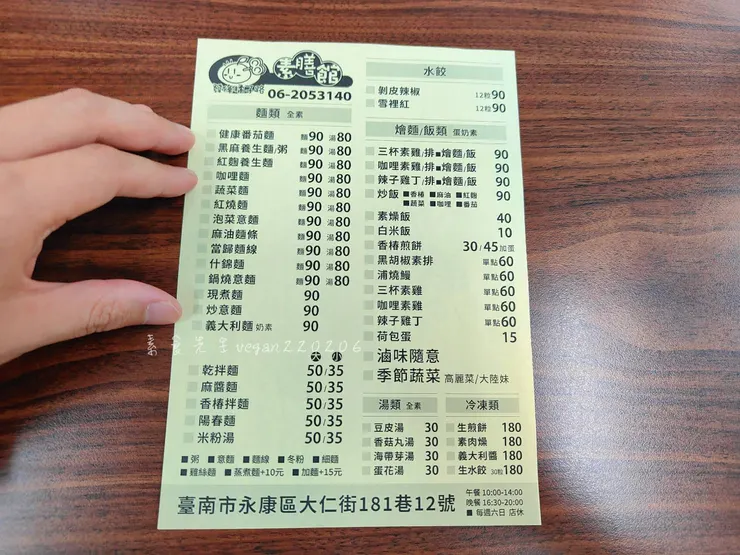 素膳館
06-2053140
麵類 全素
健康番茄麵 麵90 湯80
黑麻養生麵/粥 麵90 湯80
紅麴養生麵 麵90 湯80
咖哩麵 麵90 湯80
蔬菜麵 麵90 湯80
紅燒麵 麵90 湯80
泡菜意麵 麵90 湯80
麻油麵條 麵90 湯80
當歸麵線 麵90 湯80
什錦麵 麵90 湯80
鍋燒意麵 麵90 湯80
現煮麵 90
炒意麵 90
義大利麵 奶素 90
大 小
乾拌麵 50/35
麻醬麵 50/35
香椿拌麵 50/35
陽春麵 50/35
米粉湯 50/35
■粥 ■意麵 ■麵線 ■冬粉 ■細麵
■雞絲麵 ■蒸煮麵+10元 ■加麵+15元
水餃
剝皮辣椒 12粒90
雪裡紅 12粒90
燴麵/飯類 蛋奶素
三杯素雞/排■燴麵/飯 90
咖哩素雞/排■燴麵/飯 90
辣子雞丁/排■燴麵/飯 90
炒飯 ■香椿 ■麻油 ■紅麴 90
■蔬菜 ■咖哩 ■番茄
素燥飯 40
白米飯 10
香椿煎餅 30/45加蛋
黑胡椒素排 單點60
浦燒鰻 單點60
三杯素雞 單點60
咖哩素雞 單點60
辣子雞丁 單點60
荷包蛋 15
滷味隨意
季節蔬菜 高麗菜/大陸妹
湯類 全素
豆皮湯 30
香菇丸湯 30
海帶芽湯 30
蛋花湯 30
冷凍類
生煎餅 180
素肉燥 180
義大利醬 180
生水餃 30粒180
臺南市永康區大仁街181巷12號
午餐 10:00-14:00
晚餐 16:30-20:00
■ 每週六日 店休
素食先生vegan220206